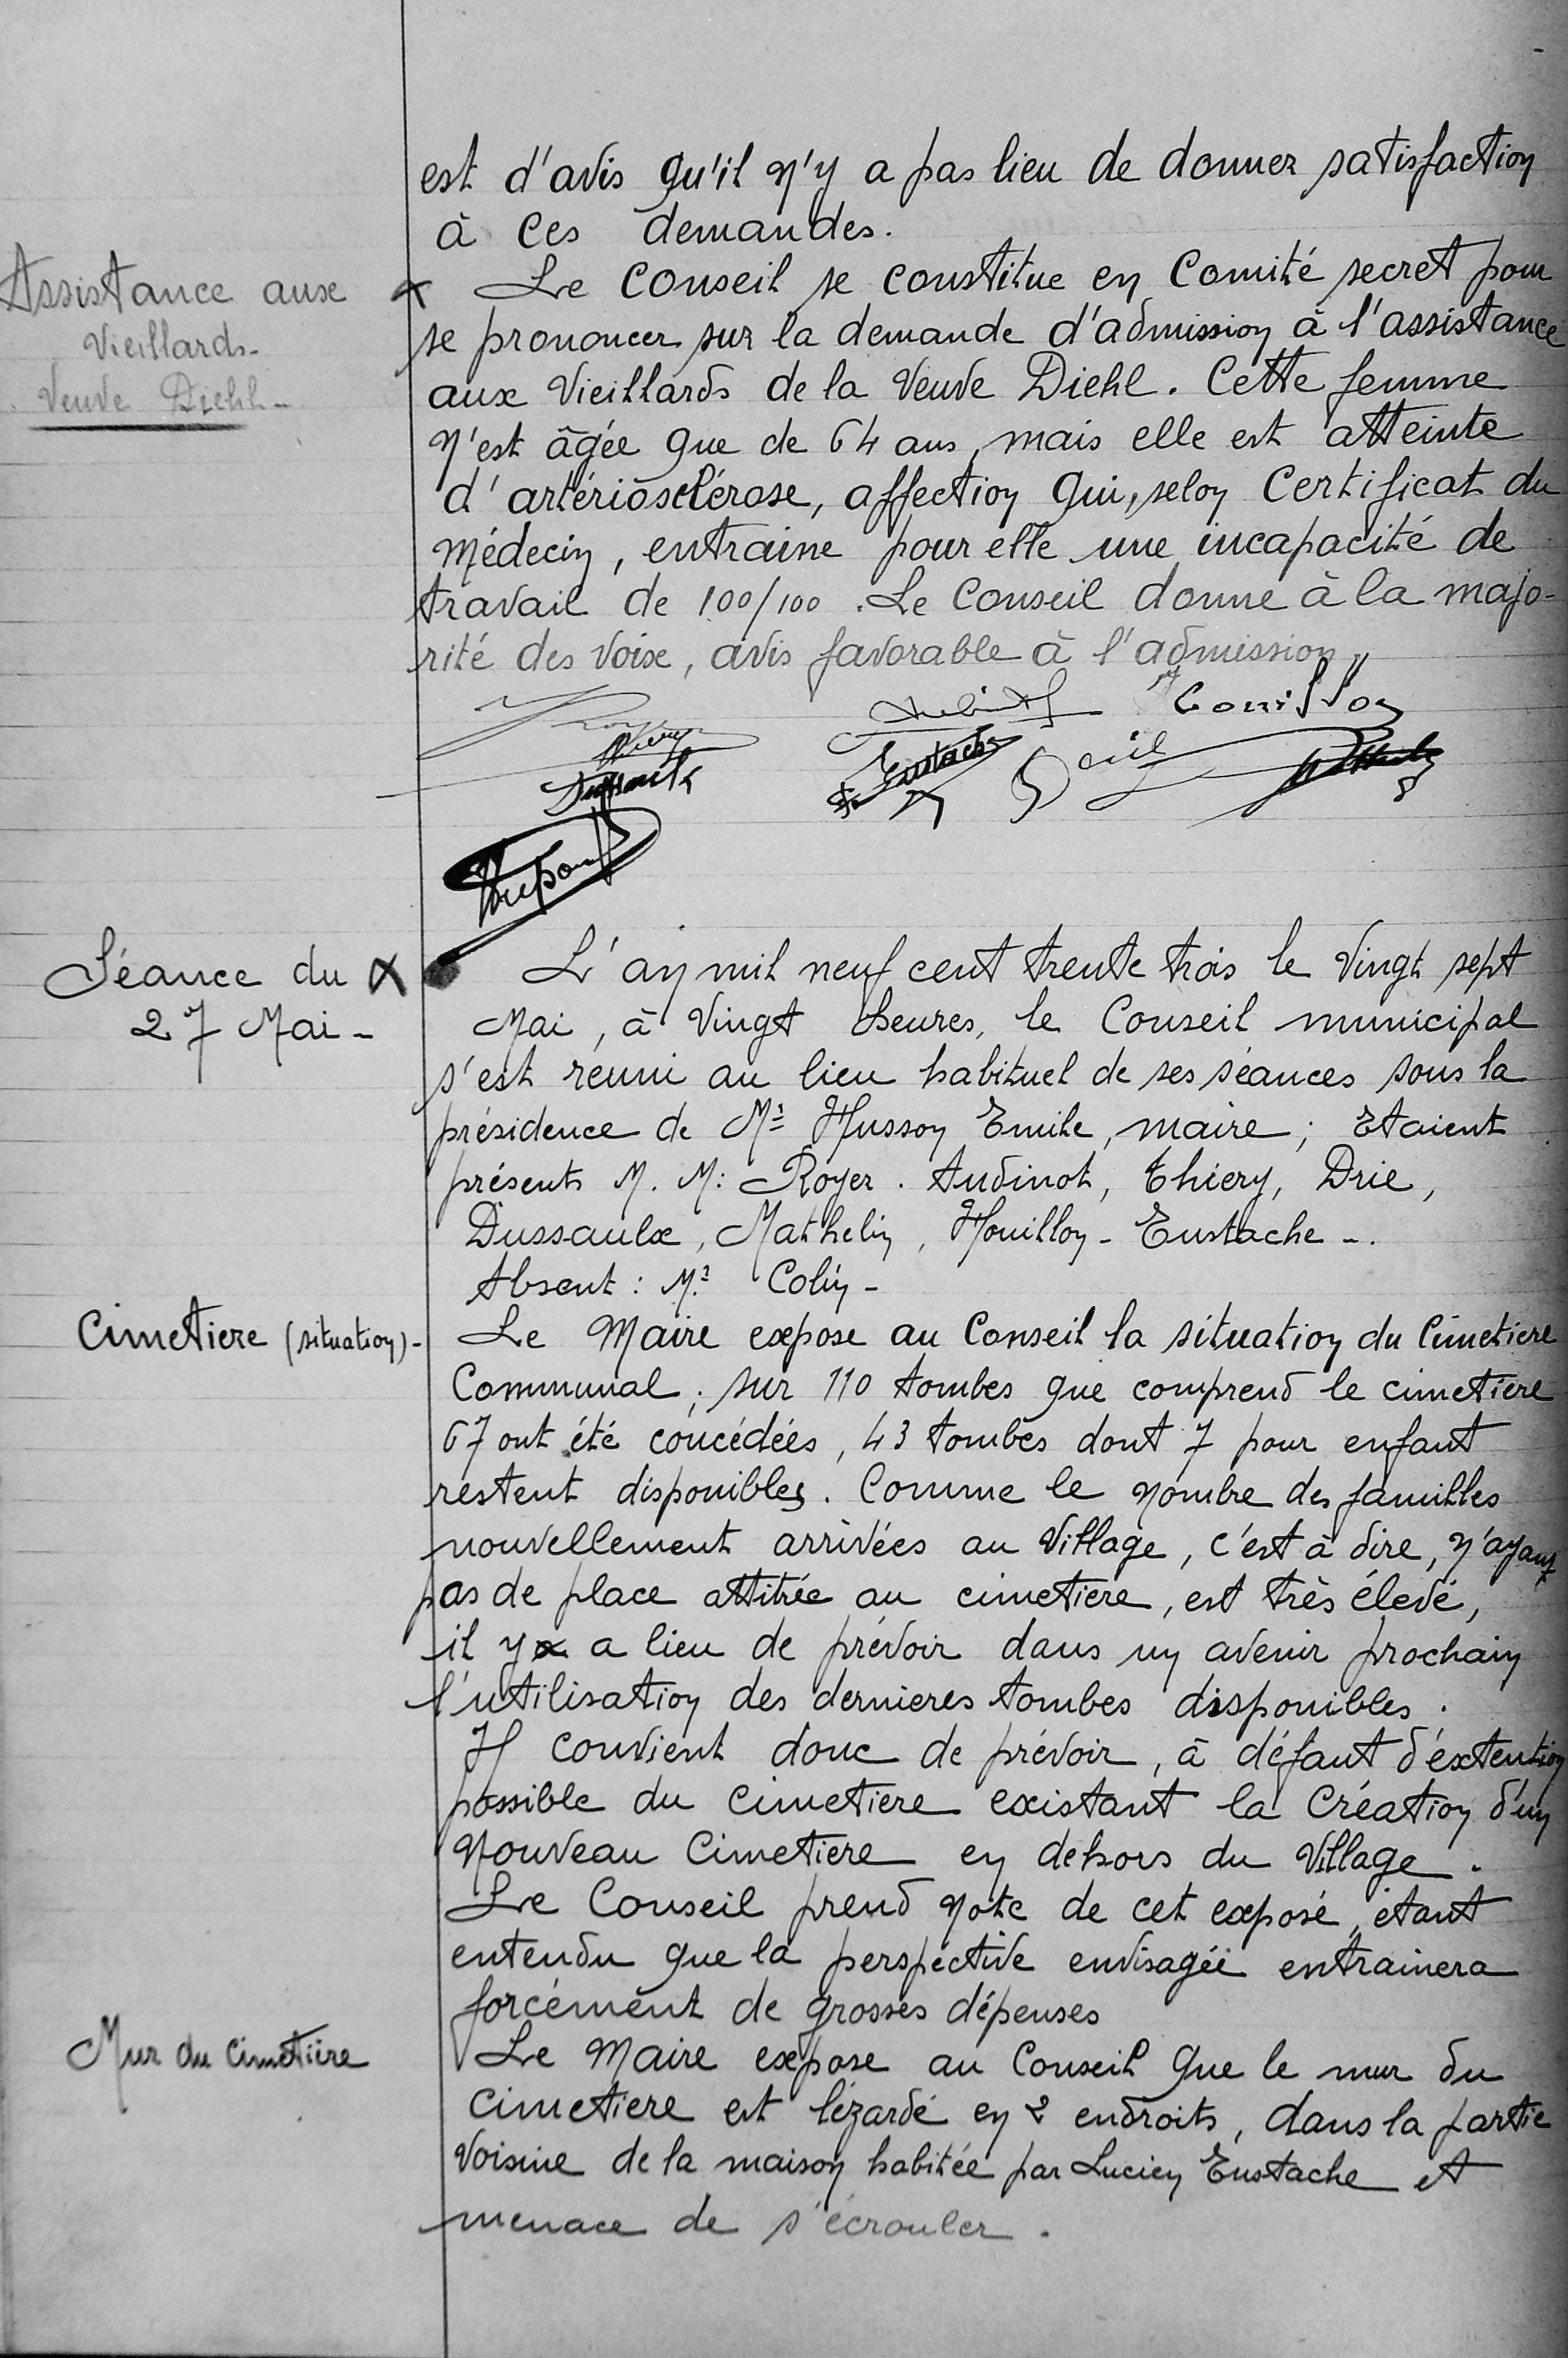 est d'avis qu'il n'y a pas lieu de donner satisfaction
à ces demandes.
Assistance aux
Vieillards-
Veuve Diehl-
Le Conseil se constitue en Comité secret pour
se prononcer sur la demande d'admission à l'assistance
aux Vieillards de la Veuve Diehl. Cette femme
n'est âgée que de 64 ans, mais elle est atteinte
d'artériosclérose, affection qui, selon Certificat du
Médecin, entraine pour elle une incapacité de
travail de 100/100. Le Conseil donne à la majo-
rité des voix, avis favorable à l'admission
Eustache
Séance du
27 Mai-
L'an mil neuf cent trente trois le Vingt sept
Mai, à Vingt heures, le Conseil municipal
s'est réuni au lieu habituel de ses séances sous la
présidence de Mr Husson Emile, maire; Etaient
présents M. M: Royer. Audinot, Thiery, Drie,
Dussaulx, Mathelin, Houillon- Eustache-.
Absent: Mr Colin-
Cimetiere (situation)-
Le Maire expose au Conseil la situation du Cimetiere
Communal; sur 110 tombes que comprend le cimetiere
67 ont été concédées, 43 tombes dont 7 pour enfant
restent disponibles. Comme le nombre des familles
nouvellement arrivées au Village, c'est à dire, n'ayant
pas de place attitrée au cimetiere, est très élevé,
il y a lieu de prévoir dans un avenir prochain
l'utilisation des dernieres tombes disponibles.
Il convient donc de prévoir, à défaut d'éxtention
possible du cimetiere existant la Création d'un
Nouveau Cimetiere en dehors du Village.
Le Conseil prend note de cet exposé, étant
entendu que la perspéctive envisagée entrainera
forcément de grosses dépenses
Mur du Cimetière
Le Maire expose au Conseil que le mur du
cimetiere est lézardé en 2 endroits, dans la partie
Voisine de la maison habitée par Lucien Eustache et
menace de s'écrouler.